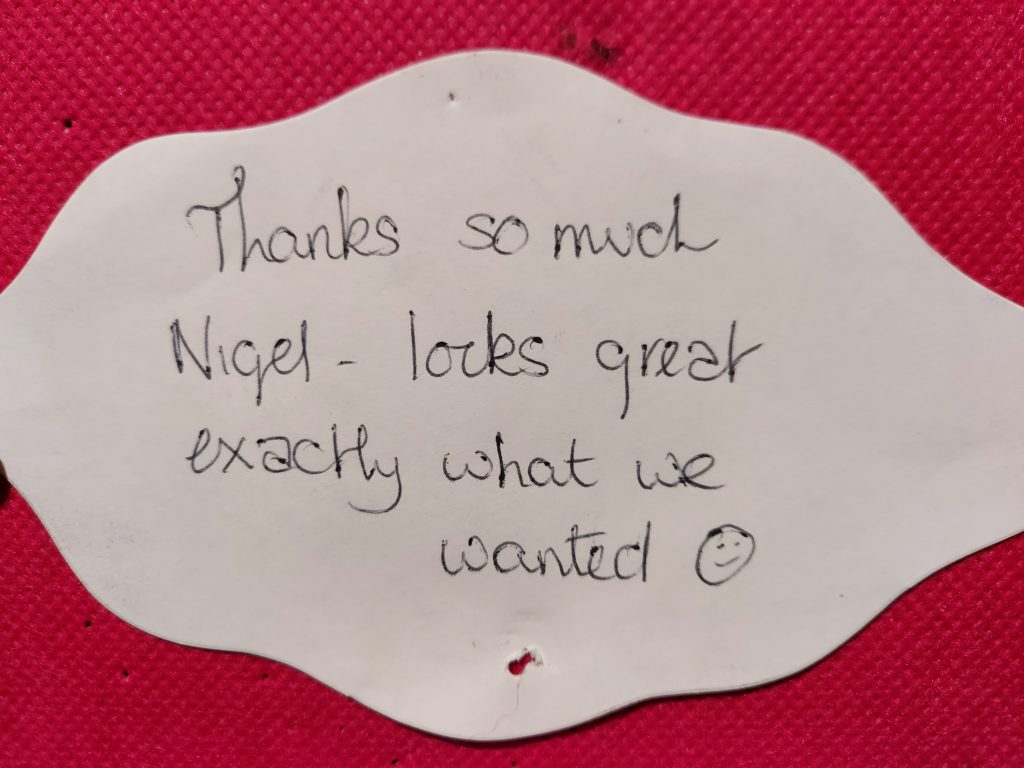 Thanks so much
Nigel - looks great
exactly what we
wanted ☺